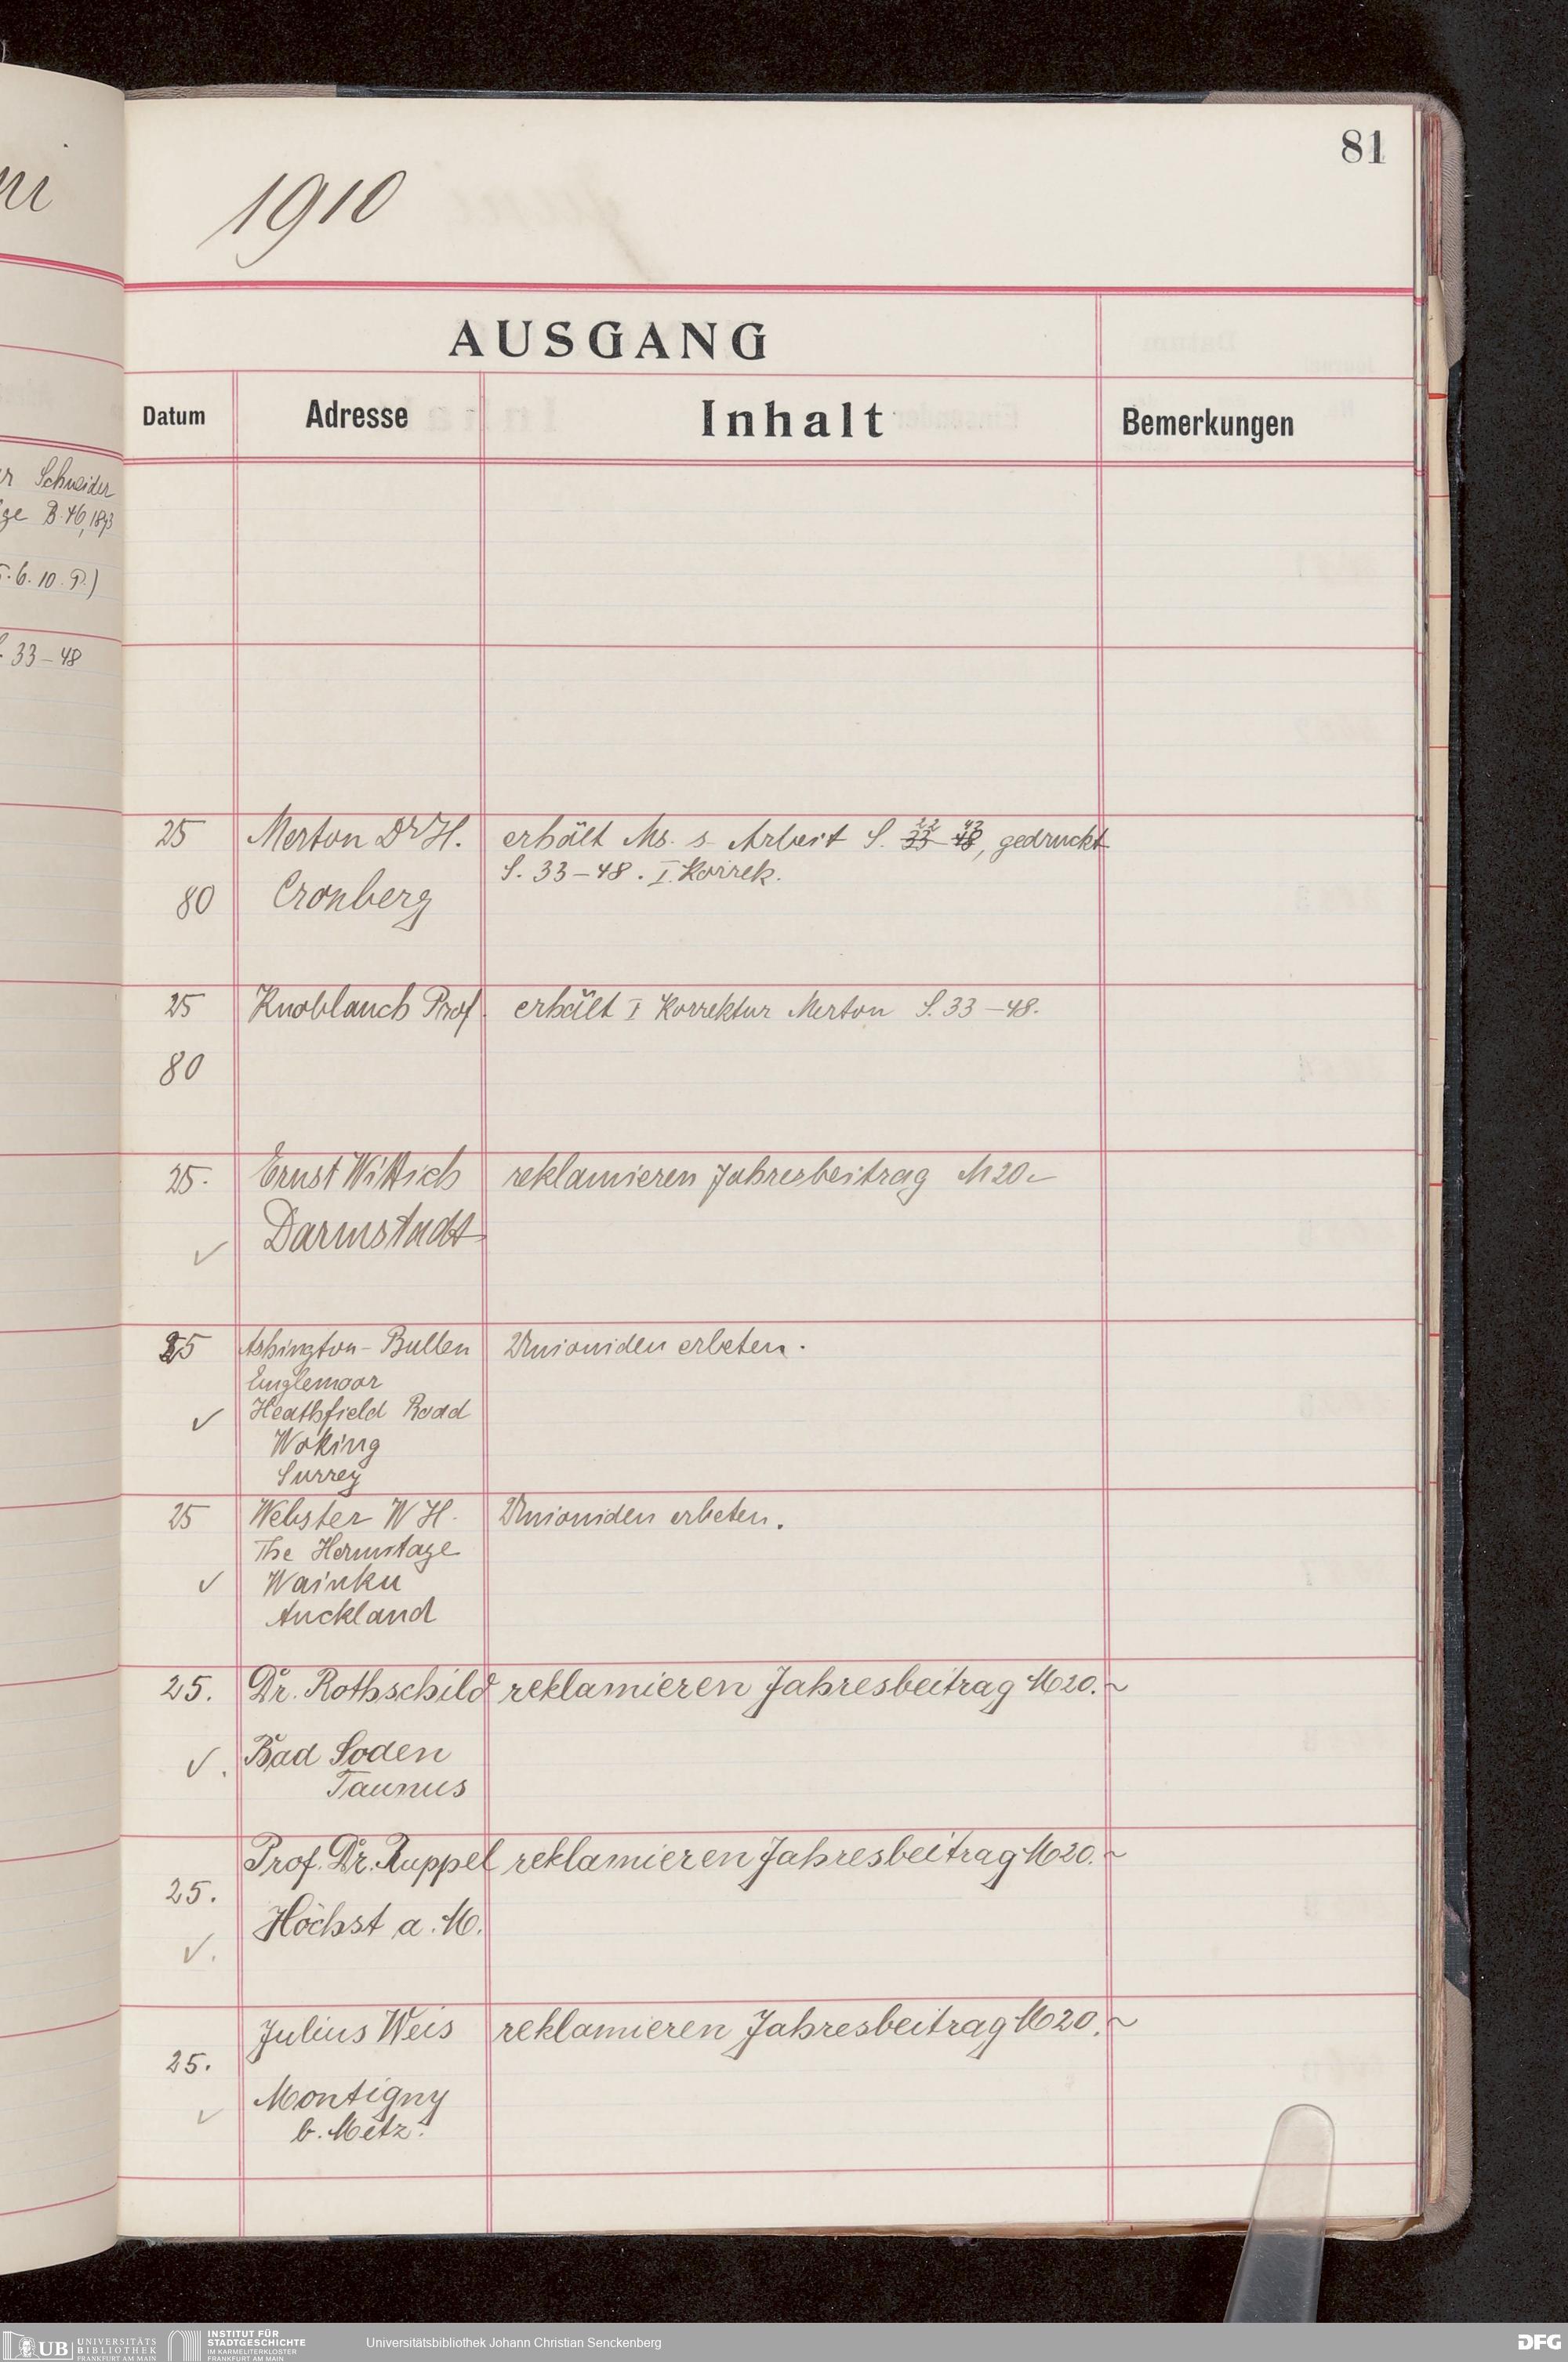 81
1910
AUSGANG
Datum Adresse Inhalt Bemerkungen
Schneider
B. 46, 1893
6. 10. P.)
33-48
25 Merton Dr H. erhält Ms. s. Arbeit S. 33-48, gedruckt
22 43
S. 33-48. I. Korrek.
80 Cronberg
25 Knoblauch Prof. erhält I Korrektur Merton S. 33-48.
80
25. Ernst Wittich reklamieren Jahresbeitrag M 20.-
Darmstadt
✓
25 Ashington-Bullen Unioniden erbeten.
Englemoor
✓ Heathfield Road
Woking
Surrey
25 Webster W H. Unioniden erbeten.
The Hermitage
✓ Wainku
Auckland
25. Dr. Rothschild reklamieren Jahresbeitrag M 20.~
✓. Bad Soden
Taunus
Prof. Dr. Ruppel reklamieren Jahresbeitrag M 20.~
25.
Höchst a. M.
✓.
Julius Weis reklamieren Jahresbeitrag M 20.~
25.
Montigny
✓ b. Metz.
UB UNIVERSITÄTS BIBLIOTHEK FRANKFURT AM MAIN
INSTITUT FÜR STADTGESCHICHTE IM KARMELITERKLOSTER FRANKFURT AM MAIN
Universitätsbibliothek Johann Christian Senckenberg
DFG